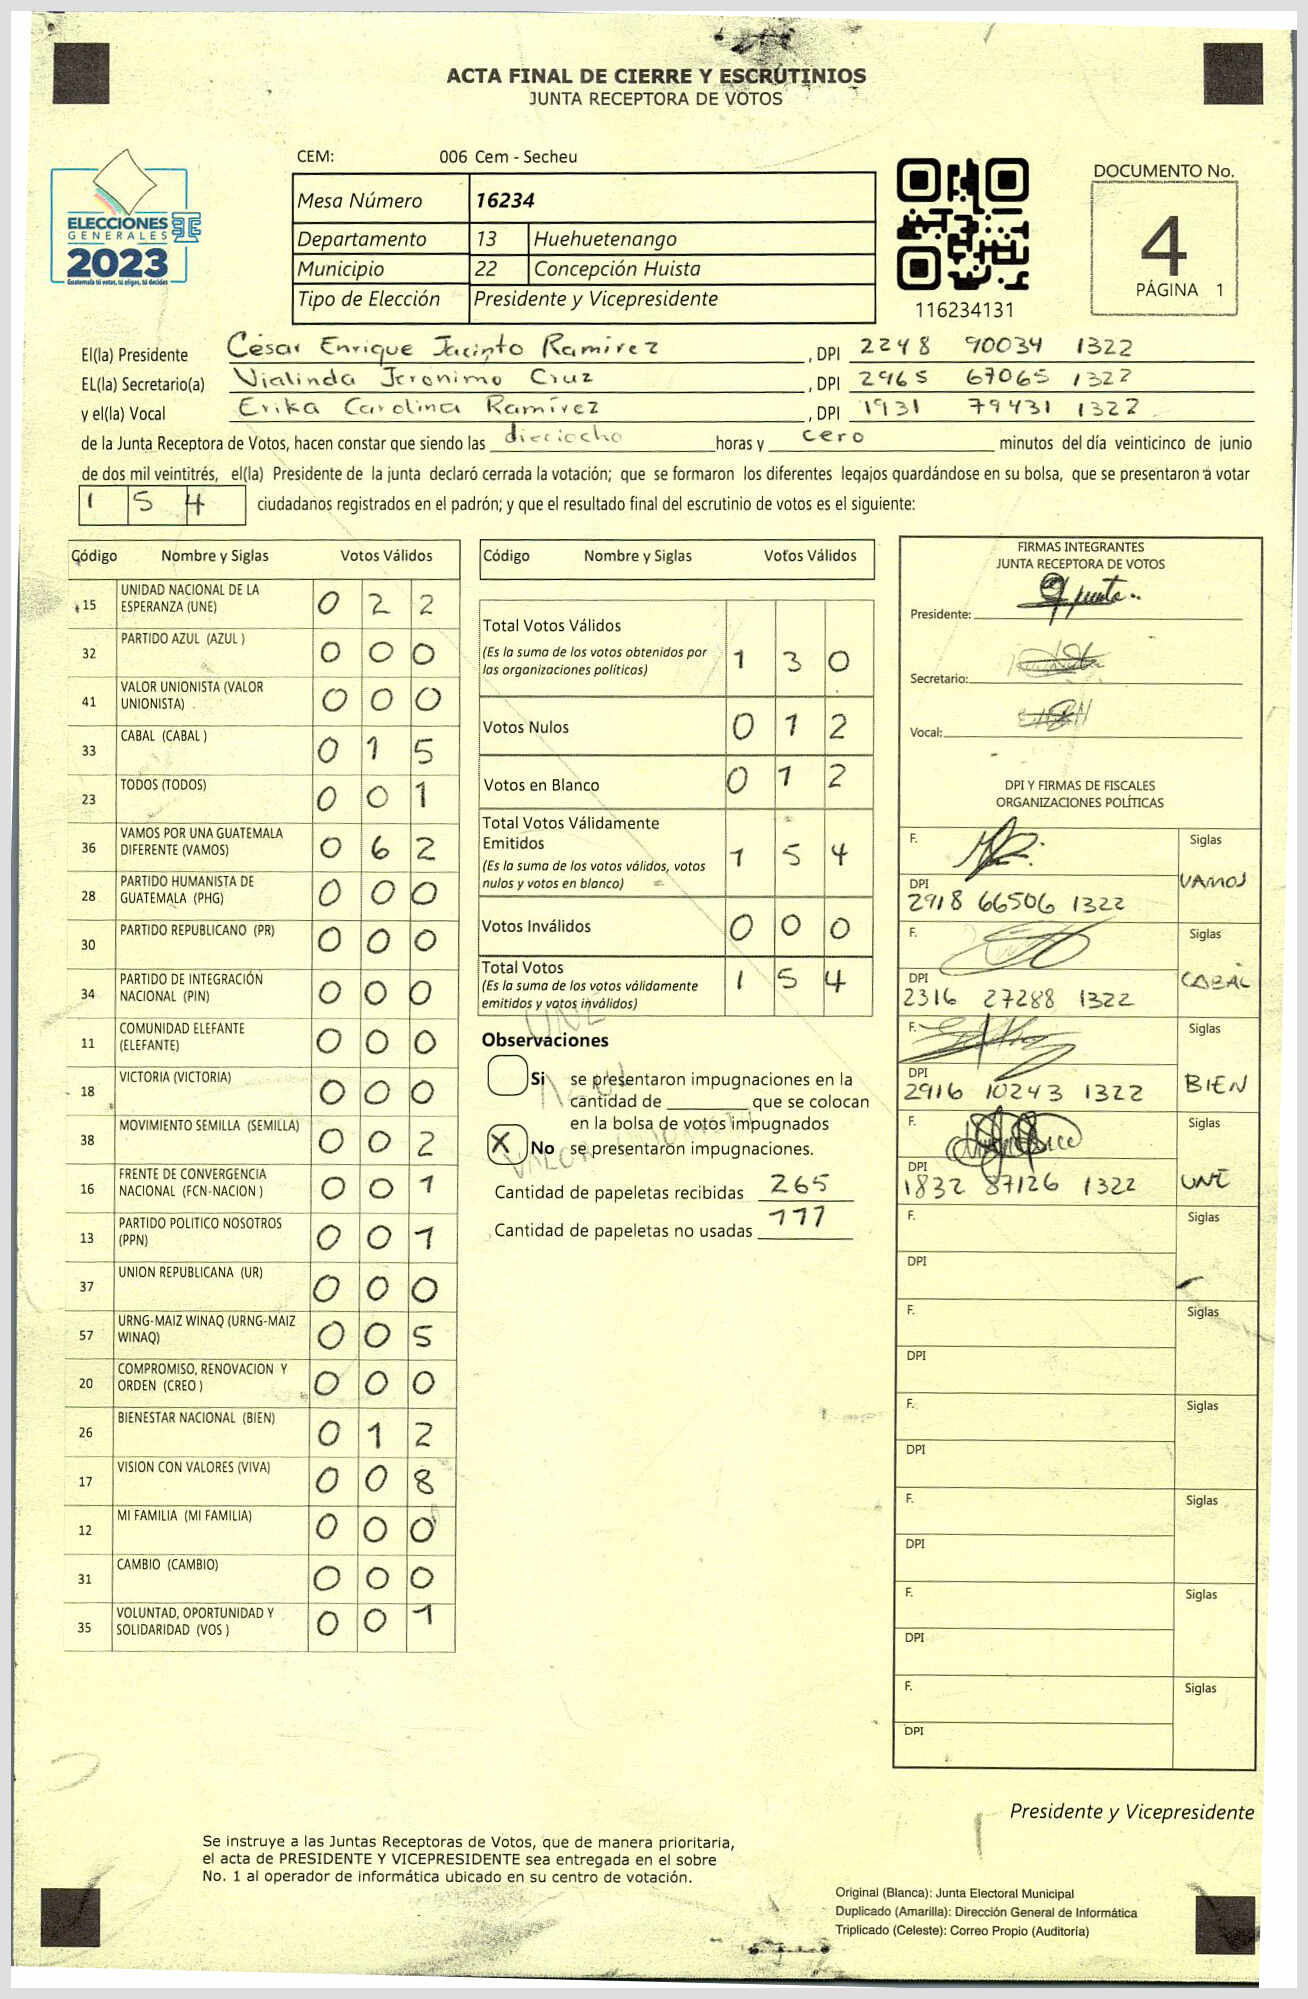 ACTA FINAL DE CIERRE Y ESCRUTINIOS
JUNTA RECEPTORA DE VOTOS
CEM: 006 Cem - Secheu
ELECCIONES
GENERALES
2023
Guatemala tú votas, tú eliges, tú decides
Mesa Número 16234
Departamento 13 Huehuetenango
Municipio 22 Concepción Huista
Tipo de Elección Presidente y Vicepresidente
116234131
DOCUMENTO No.
4
PÁGINA 1
El(la) Presidente César Enrique Jacinto Ramirez, DPI 2248 90034 1322
EL(la) Secretario(a) Vialinda Jeronimo Cruz, DPI 2965 67065 1322
y el(la) Vocal Erika Carolina Ramírez, DPI 1931 79431 1322
de la Junta Receptora de Votos, hacen constar que siendo las dieciocho horas y cero minutos del día veinticinco de junio
de dos mil veintitrés, el(la) Presidente de la junta declaró cerrada la votación; que se formaron los diferentes legajos quardándose en su bolsa, que se presentaron a votar
1 5 4 ciudadanos registrados en el padrón; y que el resultado final del escrutinio de votos es el siguiente:
Código Nombre y Siglas Votos Válidos
15 UNIDAD NACIONAL DE LA ESPERANZA (UNE) 0 2 2
32 PARTIDO AZUL (AZUL ) 0 0 0
41 VALOR UNIONISTA (VALOR UNIONISTA) 0 0 0
33 CABAL (CABAL ) 0 1 5
23 TODOS (TODOS) 0 0 1
36 VAMOS POR UNA GUATEMALA DIFERENTE (VAMOS) 0 6 2
28 PARTIDO HUMANISTA DE GUATEMALA (PHG) 0 0 0
30 PARTIDO REPUBLICANO (PR) 0 0 0
34 PARTIDO DE INTEGRACIÓN NACIONAL (PIN) 0 0 0
11 COMUNIDAD ELEFANTE (ELEFANTE) 0 0 0
18 VICTORIA (VICTORIA) 0 0 0
38 MOVIMIENTO SEMILLA (SEMILLA) 0 0 2
16 FRENTE DE CONVERGENCIA NACIONAL (FCN-NACION ) 0 0 1
13 PARTIDO POLITICO NOSOTROS (PPN) 0 0 1
37 UNION REPUBLICANA (UR) 0 0 0
57 URNG-MAIZ WINAQ (URNG-MAIZ WINAQ) 0 0 5
20 COMPROMISO, RENOVACION Y ORDEN (CREO ) 0 0 0
26 BIENESTAR NACIONAL (BIEN) 0 1 2
17 VISION CON VALORES (VIVA) 0 0 8
12 MI FAMILIA (MI FAMILIA) 0 0 0
31 CAMBIO (CAMBIO) 0 0 0
35 VOLUNTAD, OPORTUNIDAD Y SOLIDARIDAD (VOS ) 0 0 1
Código Nombre y Siglas Votos Válidos
Total Votos Válidos
(Es la suma de los votos obtenidos por
las organizaciones políticas) 1 3 0
Votos Nulos 0 1 2
Votos en Blanco 0 1 2
Total Votos Válidamente
Emitidos
(Es la suma de los votos válidos, votos
nulos y votos en blanco) 1 5 4
Votos Inválidos 0 0 0
Total Votos
(Es la suma de los votos válidamente
emitidos y votos inválidos) 1 5 4
UNE
Observaciones
Si se presentaron impugnaciones en la
cantidad de ________ que se colocan
en la bolsa de votos impugnados
X No se presentaron impugnaciones.
Cantidad de papeletas recibidas 265
Cantidad de papeletas no usadas 111
FIRMAS INTEGRANTES
JUNTA RECEPTORA DE VOTOS
Presidente:
Secretario:
Vocal:
DPI Y FIRMAS DE FISCALES
ORGANIZACIONES POLÍTICAS
F. Siglas
DPI VAMOS
2918 66506 1322
F. Siglas
DPI CABAL
2316 27288 1322
F. Siglas
DPI BIEN
2916 10243 1322
F. Siglas
DPI UNE
1832 87126 1322
F. Siglas
DPI
F. Siglas
DPI
F. Siglas
DPI
F. Siglas
DPI
F. Siglas
DPI
F. Siglas
DPI
Presidente y Vicepresidente
Se instruye a las Juntas Receptoras de Votos, que de manera prioritaria,
el acta de PRESIDENTE Y VICEPRESIDENTE sea entregada en el sobre
No. 1 al operador de informática ubicado en su centro de votación.
Original (Blanca): Junta Electoral Municipal
Duplicado (Amarilla): Dirección General de Informática
Triplicado (Celeste): Correo Propio (Auditoría)